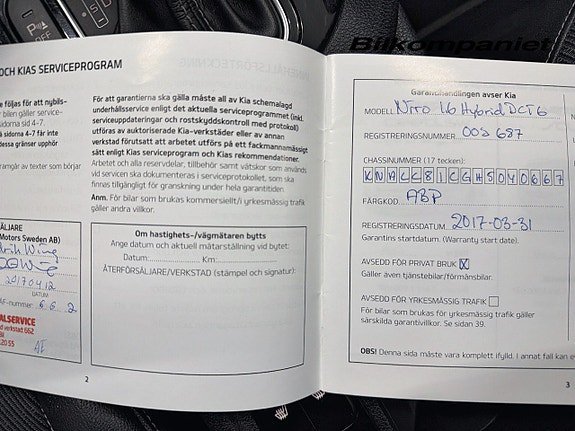 OCH KIAS SERVICEPROGRAM
följas för att nybils-
bilen gäller service-
sidorna 4-7.
sidorna 4-7 får inte
dessa gränser upphör
framgår av texter som börjar
För att garantierna ska gälla måste all av Kia schemalagd
underhållsservice enligt det aktuella serviceprogrammet (inkl.
serviceuppdateringar och rostskyddskontroll med protokoll)
utföras av auktoriserade Kia-verkstäder eller av annan
verkstad förutsatt att arbetet utförs på ett fackmannamässigt
sätt enligt Kias serviceprogram och Kias rekommendationer.
Arbetet och alla reservdelar, tillbehör samt vätskor som används
vid servicen ska dokumenteras i serviceprotokollet, som ska
finnas tillgängligt för granskning under hela garantitiden.
Anm. För bilar som brukas kommersiellt/yrkesmässig trafik
gäller andra villkor.
SÄLJARE
Motors Sweden AB)
20170412
DATUM
nummer 6 6 2
ALSERVICE
verkstad 662
20 55
Om hastighets-/vägmätaren bytts
Ange datum och aktuell mätarställning vid bytet:
Datum: Km:
ÅTERFÖRSÄLJARE/VERKSTAD (stämpel och signatur):
2
Bilkompaniet
Garantihandlingen avser Kia
MODELL Niro 1.6 Hybrid DCT6
REGISTRERINGSNUMMER OOS 687
CHASSINUMMER (17 tecken):
KNACC81CGH5040667
FÄRGKOD ABP
REGISTRERINGSDATUM 2017-03-31
Garantins startdatum. (Warranty start date).
AVSEDD FÖR PRIVAT BRUK X
Gäller även tjänstebilar/förmånsbilar.
AVSEDD FÖR YRKESMÄSSIG TRAFIK
För bilar som brukas för yrkesmässig trafik gäller
särskilda garantivillkor. Se sidan 39.
OBS! Denna sida måste vara komplett ifylld. I annat fall kan ev
3